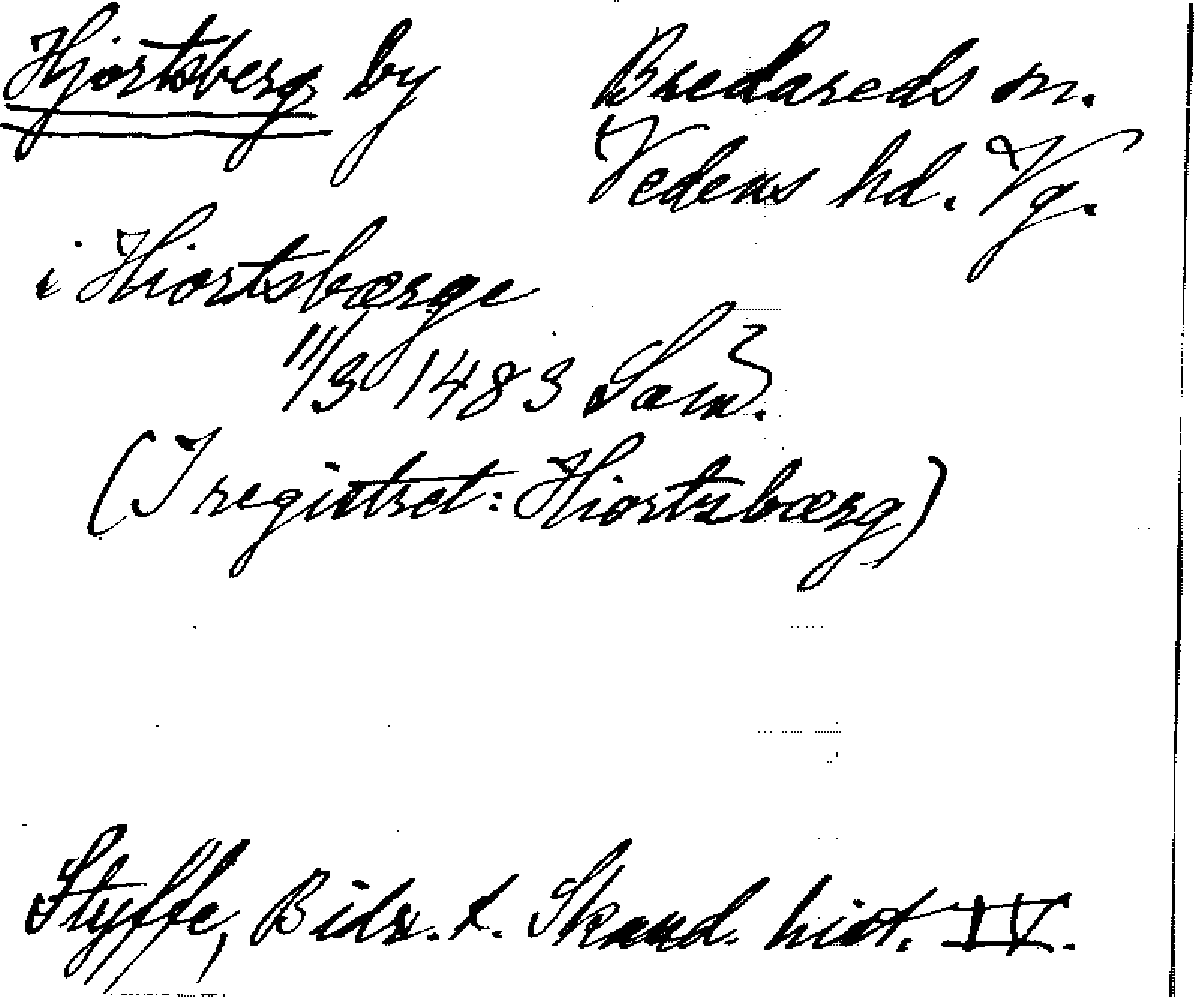 Hjortsberg by Bredareds sn.
Vedens hd. Vg.
i Hiortsbærge
11/3 1483 Sam.
(I registret: Hiortzbærg)
Styffe, Bidr. t. Skand. hist. IV.